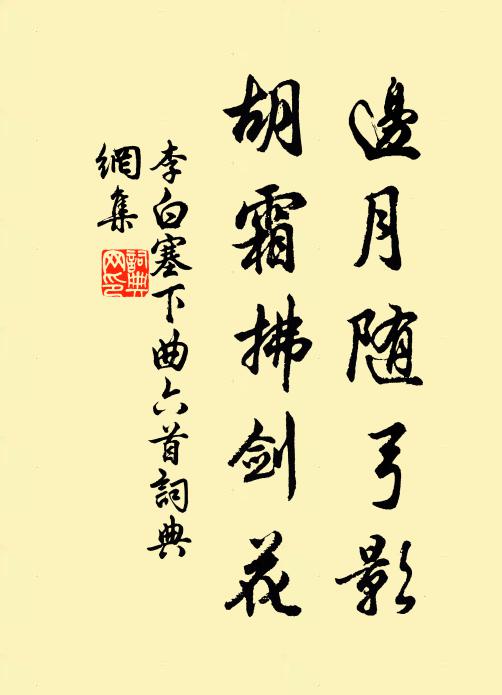 邊月随弓影
胡霜拂劍花
李白塞下曲六首詞典
網集
詞典
网印